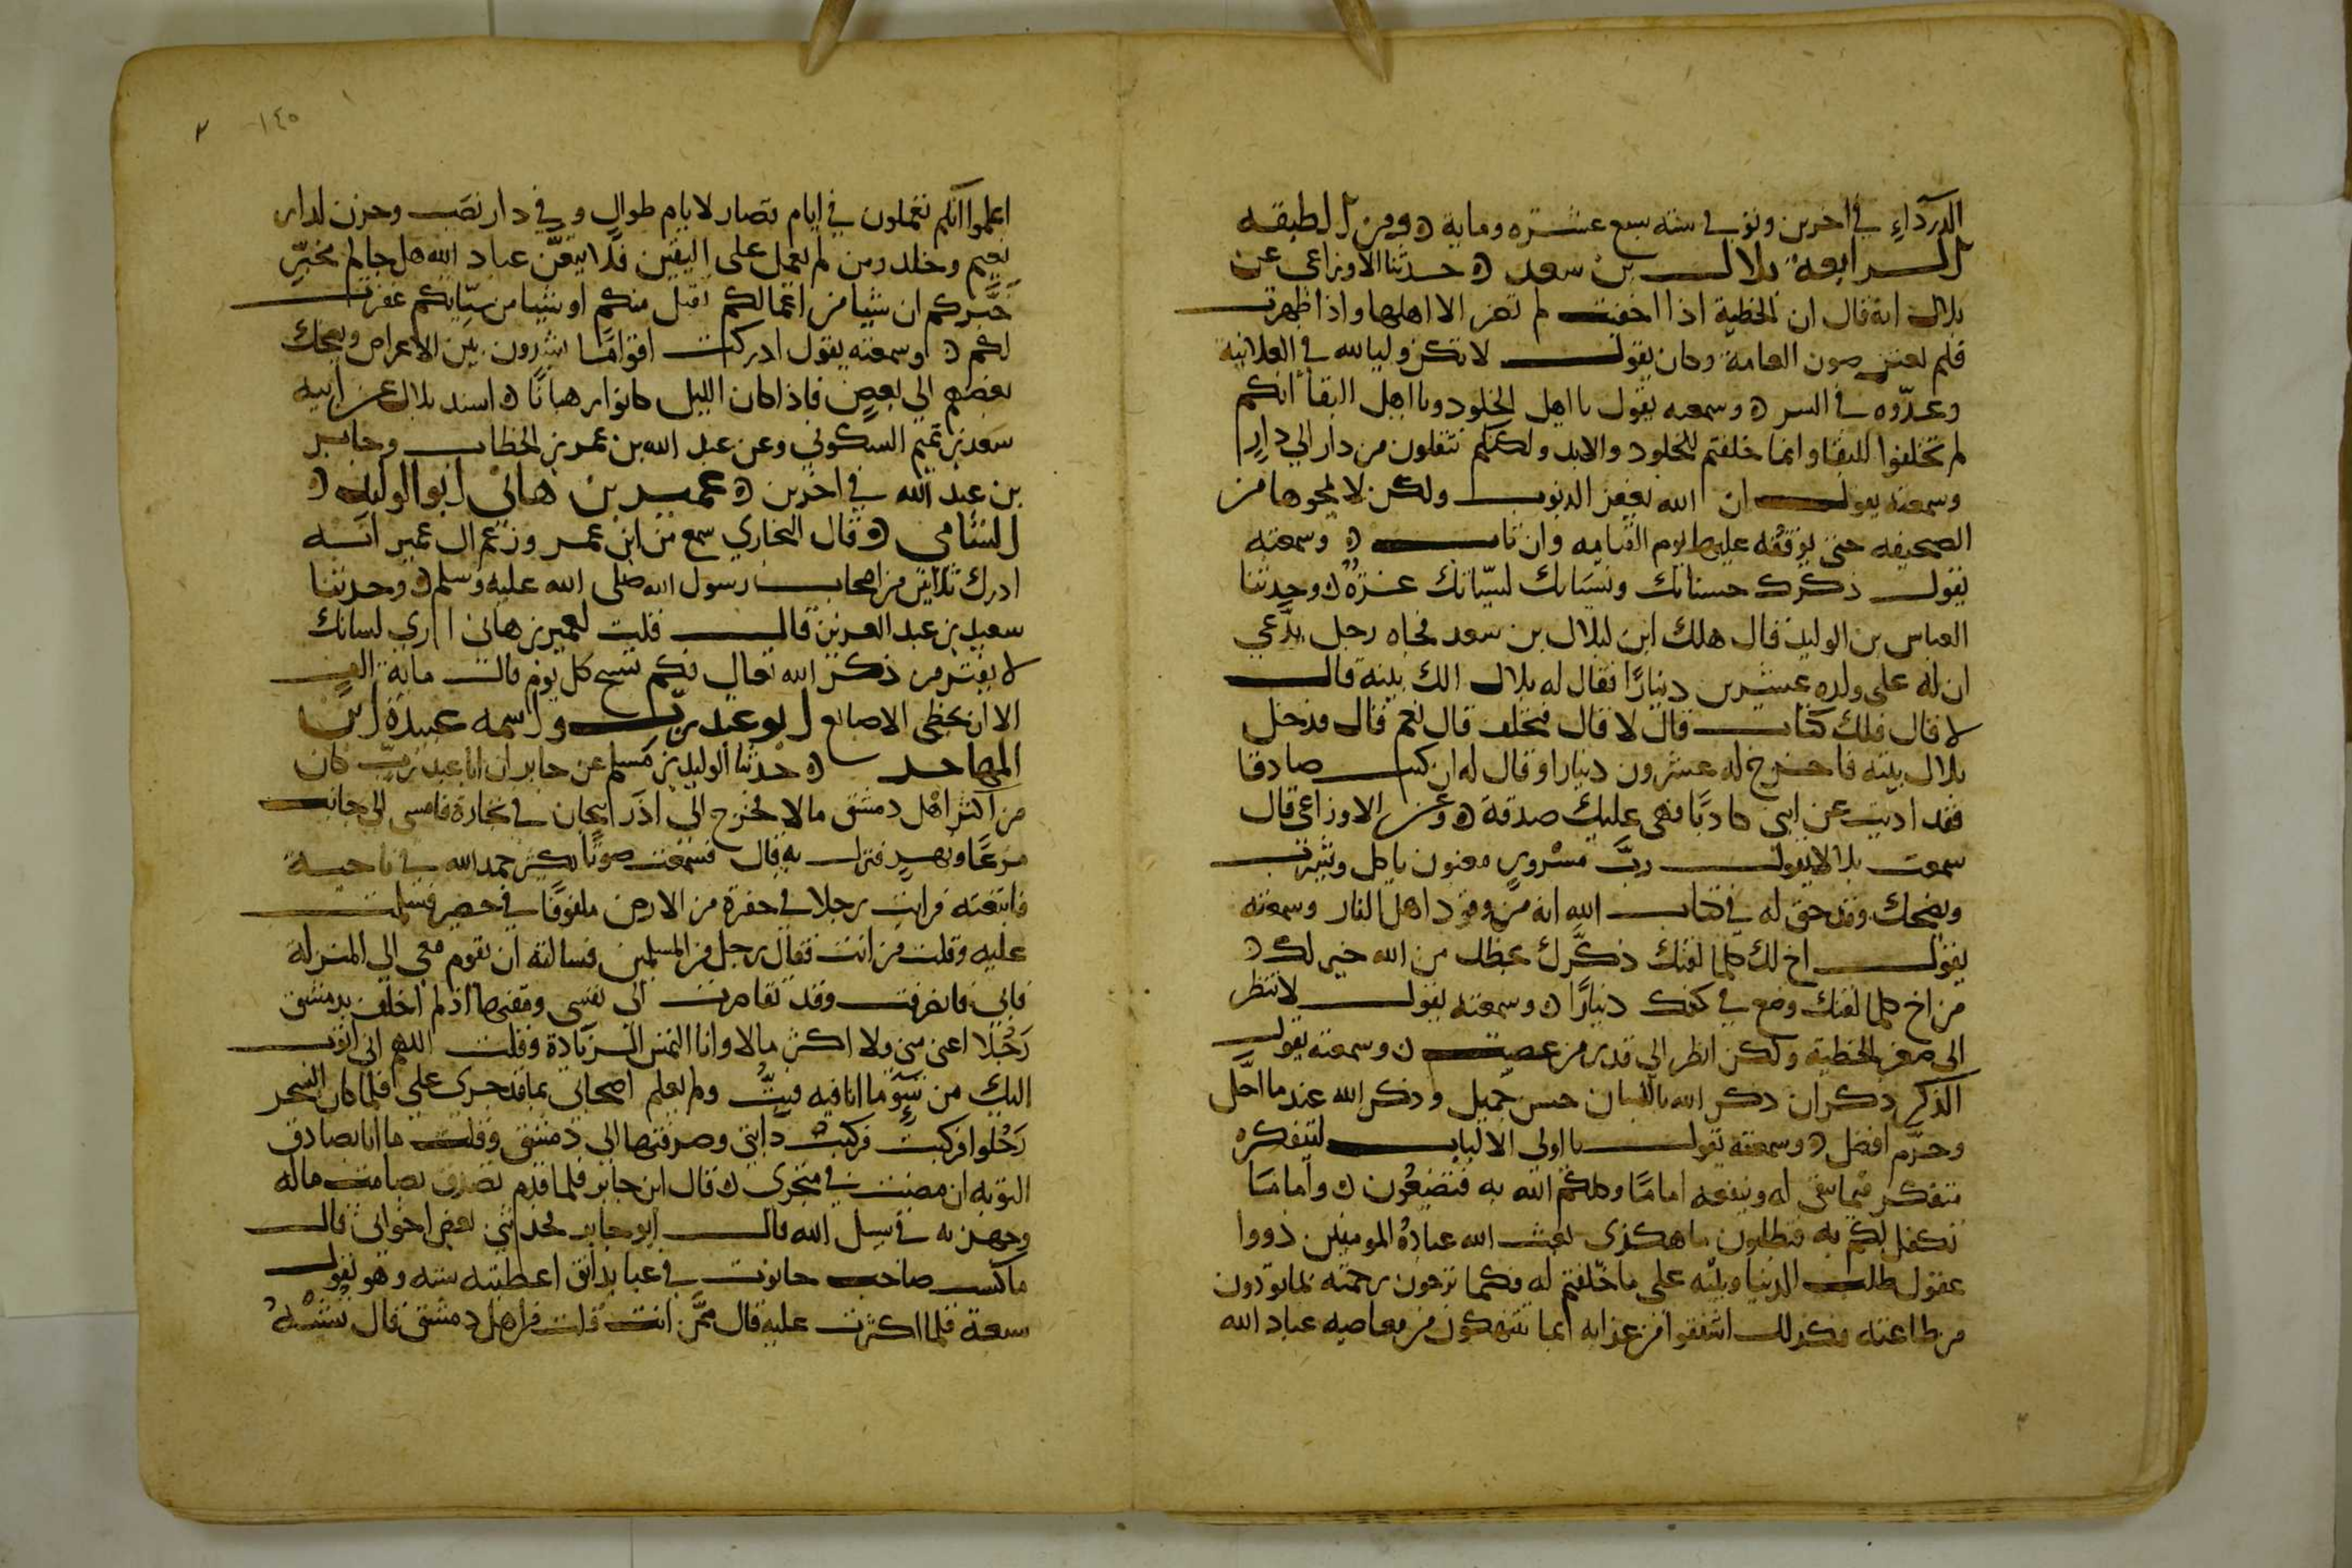 الدرداء في اخرين وتوفي سنه سبع عشره ومايه ومن الطبقه
الرابعة بلال بن سعد حدثنا الاوزاعي عن
بلال انه قال ان الخطية اذا اخفيت لم تضر الا اهلها واذا اظهرت
فلم تغير ضرت العامة وكان يقول لا تكن وليا لله في العلانية
وعدوه في السر وسمعه يقول يا اهل الخلود ويا اهل البقا انكم
لم تخلقوا للفنا وانما خلقتم للخلود والابد ولكنكم تنقلون من دار الي دار
وسمعته يقول ان الله يغفر الذنوب ولكن لا يمحوها من
الصحيفه حتى يوقفه عليها يوم القيامه وان تاب وسمعته
يقول ذكرك حسناتك ونسيانك لسيياتك غرة وحدثنا
العباس بن الوليد قال هلك ابن لبلال بن سعد فجاه رجل يدعي
ان له على ولده عشرين دينارا فقال له بلال الك بينة قال
لا قال فلك كتاب قال لا قال فتحلف قال نعم قال فدخل
بلال بيته فاخرج له عشرون دينارا وقال له ان كنت صادقا
فقد اديت عن ابني وان كنت كاذبا فهي عليك صدقة وعن الاوزاعي قال
سمعت بلالا يقول رب مسرور مغبون ياكل ويشرب
ويضحك وقد حق له في كتاب الله انه من وقود اهل النار وسمعته
يقول اخ لك كلما لقيك ذكرك بحظك من الله خير لك
من اخ كلما لقيك وضع في كفك دينارا وسمعته يقول لا تنظر
الى صغر الخطية ولكن انظر الي قدر من عصيت وسمعته يقول
الذكر ذكران ذكر الله باللسان حسن جميل وذكر الله عند ما احل
وحرم افضل وسمعته يقول يا اولى الالباب ليتفكره
متفكر فيما يبقى له وينفعه اما ما وكلكم الله به فتضيعون واما ما
تكفل لكم به فتطلبون ما هكذى نعت الله عباده المومنين ذووا
عقول طلب الدنيا وبله على ما خلقتم له فكما ترجون رحمته بما تودون
من طاعته فكذلك اشفقوا من عذابه بما تنتهكون من معاصيه عباد الله
١٤٥ ٢
اعلموا انكم تعملون في ايام قصار لايام طوال وفي دار نصب وحزن لدار
نعيم وخلد ومن لم يعمل على اليقين فلا يتعن عباد الله هل جاكم مخبر
خبركم ان شيا من اعمالكم تقبل منكم او شيا من سياتكم غفرت
لكم وسمعته يقول ادركت اقواما يشتدون بين الاعراض ويضحك
بعضهم الى بعض فاذا كان الليل كانوا رهبانا اسند بلال عن ابيه
سعد بن تميم السكوني وعن عبد الله بن عمر بن الخطاب وجابر
بن عبد الله في اخرين عمير بن هانى ابو الوليد
الشامي قال البخاري سمع من ابن عمر وزعم ال عمير انه
ادرك ثلاثين من اصحاب رسول الله صلى الله عليه وسلم وحدثنا
سعيد بن عبد العزيز قال قلت لعمير بن هانى اري لسانك
لا يفتر من ذكر الله تعالي فكم تسبح كل يوم قال ماية الف
الا ان تخطى الاصابع ابو عبد رب واسمه عبيدة بن
المهاجر حدثنا الوليد بن مسلم عن جابر ان ابا عبد رب كان
من اكثر اهل دمشق مالا فخرج الي اذربيجان في تجارة فامسى الى جانب
مرعا ونهر فنزل به قال فسمعت صوتا يكثر حمد الله في ناحية
فاتبعته فرايت رجلا في حفرة من الارض ملفوفا في حصير فسلمت
عليه وقلت من انت فقال رجل من المسلمين فسالته ان يقوم معي الي المنزلة
فابى فانصرفت وقد تقاصرت الى نفسى ومقتها اذ لم اخلف بدمشق
رجلا اغنى مني ولا اكثر مالا وانا التمس الزيادة وقلت اللهم انى اتوب
اليك من سوء ما انا فيه فبت ولم يعلم اصحابى بما قد جرى علي فلما كان السحر
رحلوا فركبت فركبت دابتى وصرفتها الى دمشق وقلت ما انا بصادق
التوبه ان مضيت في متجرى قال ابن جابر فلما قدم تصدق بصامت ماله
وجهز به في سبيل الله قال ابو جابر فحدثنى بعض اخوانى قال
ماكست صاحب حانوت في عبا بدانق اعطيته سته وهو يقول
سبعة فلما اكثرت عليه قال ممن انت قلت من اهل دمشق قال تشبه